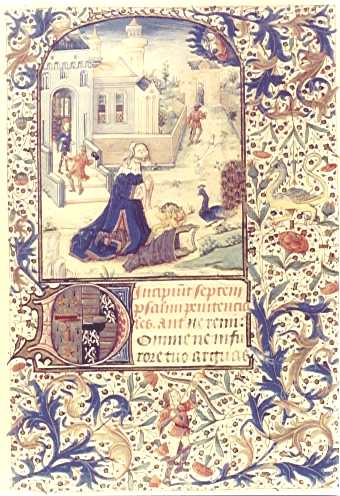 Incipiūt septem
psalmi penitenci
ales. ant. ne remi
Domine ne in fu
rore tuo arguas